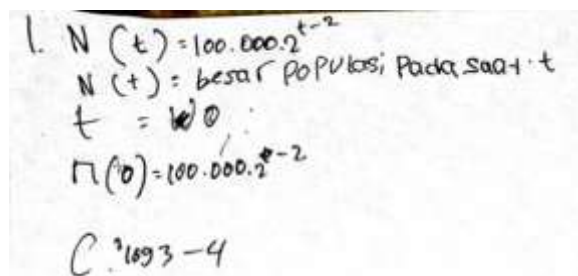 1. N (t) = 100.000.2^{t-2}
N (t) = besar populasi pada saat t
t = 0
n(0) = 100.000.2^{-2}
C. ³log 3 - 4